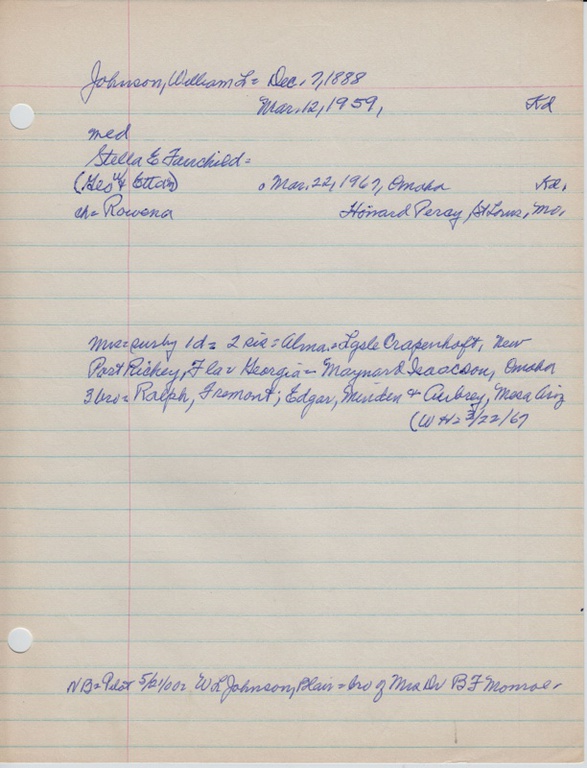 Johnson, William L = Dec. 7, 1888
Mar. 12, 1959, Kd
med
Stella E Fairchild =
(Geo W & Etta) o Mar. 22, 1967, Omaha Kd.
ch = Rowena Howard Peray, St Louis, Mo.
Mrs = surby 1d = 2 sis = Alma = Lysle Crapenhoft, New
Port Richey, Fla & Georgia = Maynard Isaacson, Omaha
3 bro = Ralph, Fremont; Edgar, Minden & Aubrey, Mesa Ariz
(W H = 3/22/67
NB = Pilot 5/21/00 = W L Johnson, Blair = bro of Mrs Dr B F Monroe.